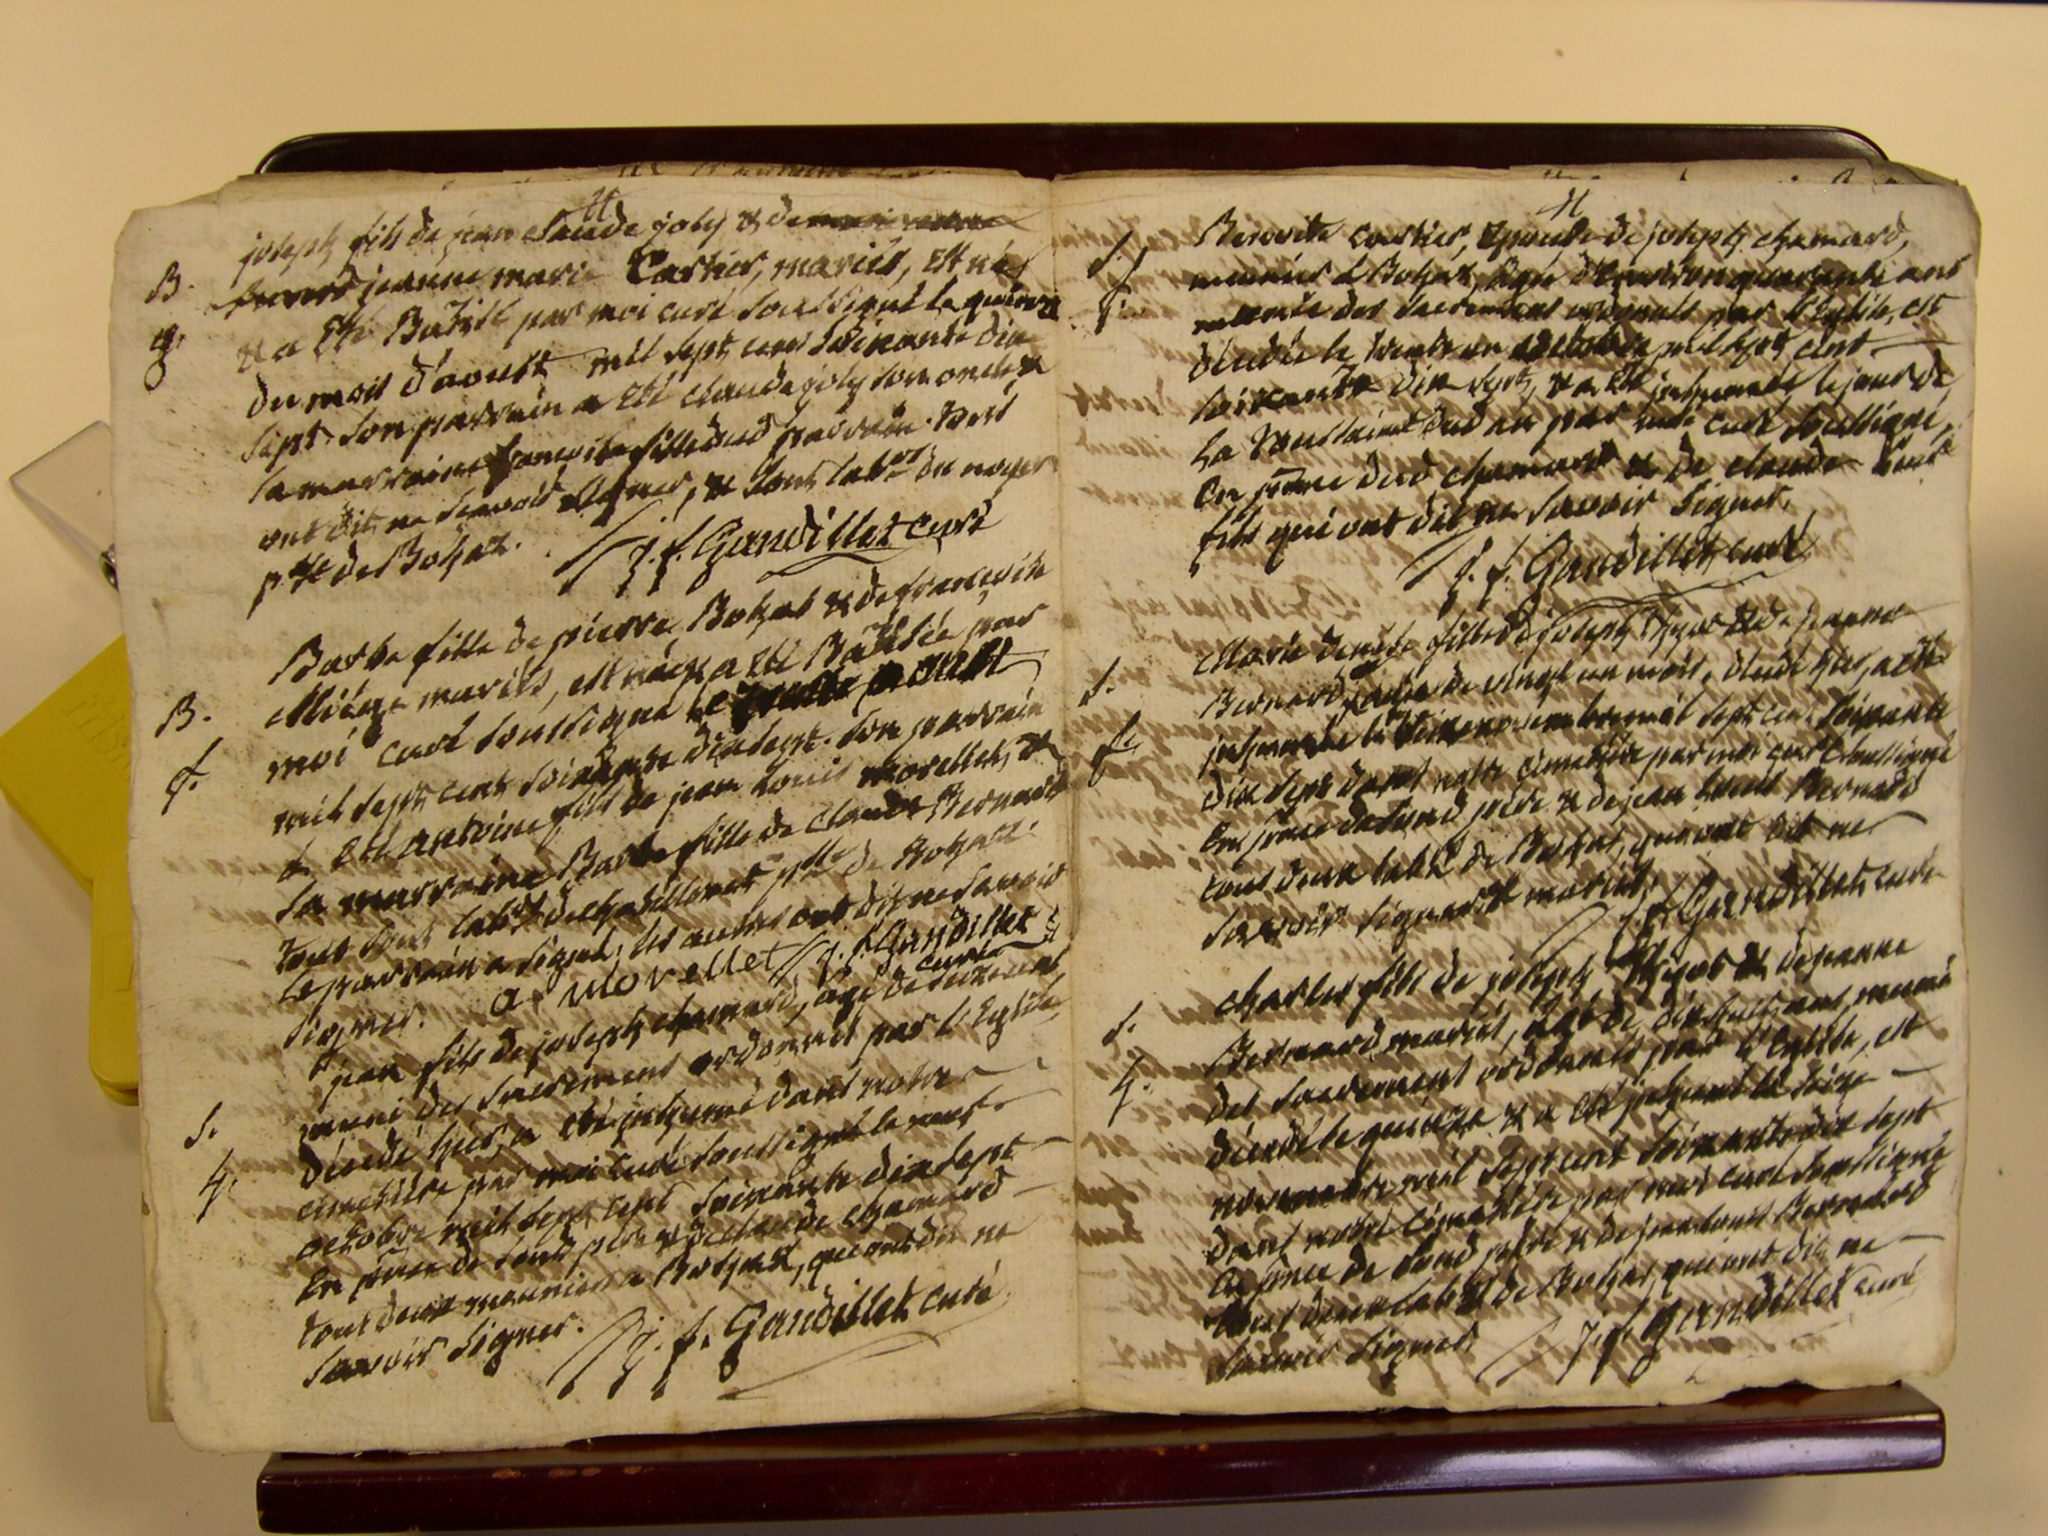 B.
g.
joseph fils de jean claude joly & de
jeanne marie Cartier, mariés, est né
& a Eté Batisé par moi curé soussigné le quinze
du mois d'aoust mil sept cent soixante dix
sept. son parrain a Eté claude joly son oncle &
la marraine françoise fille dud parrain. tous
ont dit ne scavoir signer, & sont labrs du noyer
psse de Bohaz.
j. f. Gandillet curé
B.
f.
Barbe fille de pierre Bohas & de françoise
Miége mariés, est née & a Eté Batisée par
moi curé soussigné le trente aoust
mil sept cent soixante dix sept. son parrain
a Eté antoine fils de jean Louis morellet, &
la marraine Barbe fille de claude Bernard
tous sont labrs de chatillonet psse de Bohaz.
Le parrain a signé, les autres ont dit ne savoir
signer. a. morellet j. f. Gandillet
curé
S.
g.
jean fils de joseph chamard, agé de
muni des sacremens ordonnés par l'Eglise,
décédé hier, a eté inhumé dans notre
cimetière par moi curé soussigné le
octobre mil sept cent soixante dix sept
En pnce de sond pere & de claude chamard
tous deux meuniers a Bohaz, qui ont dit ne
savoir signer.
j. f. Gandillet curé
S.
f.
Benoite cartier, Epouse de joseph chamard,
meunier a Bohaz, agée d'Environ quarante ans
munie des sacremens ordonnés par l'Eglise, est
décédée le trente un octobre mil sept cent
soixante dix sept, & a Eté inhumée le jour de
La Toussaint dud an par moi curé soussigné,
En pnce dud chamard & de claude leur
fils qui ont dit ne savoir signer.
j. f. Gandillet curé
S.
f.
Marie denise fille de joseph & de jeanne
Bernard, agée de vingt un mois, décédée hier, a eté
inhumée le novembre mil sept cent soixante
dix sept dans notre cimetière par moi curé soussigné
En pnce de sond pere & de jean Louis Bernard
tous deux labrs de Bohas, qui ont dit ne
savoir signer
j. f. Gandillet curé
S.
g.
charles fils de joseph & de jeanne
Bernard mariés, agé de dix huit ans, muni
des sacremens ordonnés par l'Eglise, est
décédé le quinze & a eté inhumé le seize
novembre mil sept cent soixante dix sept
dans notre cimetière par moi curé soussigné
En pnce de sond pere & de jean Louis Bernard
tous deux labrs de Bohas, qui ont dit ne
savoir signer.
j. f. Gandillet curé